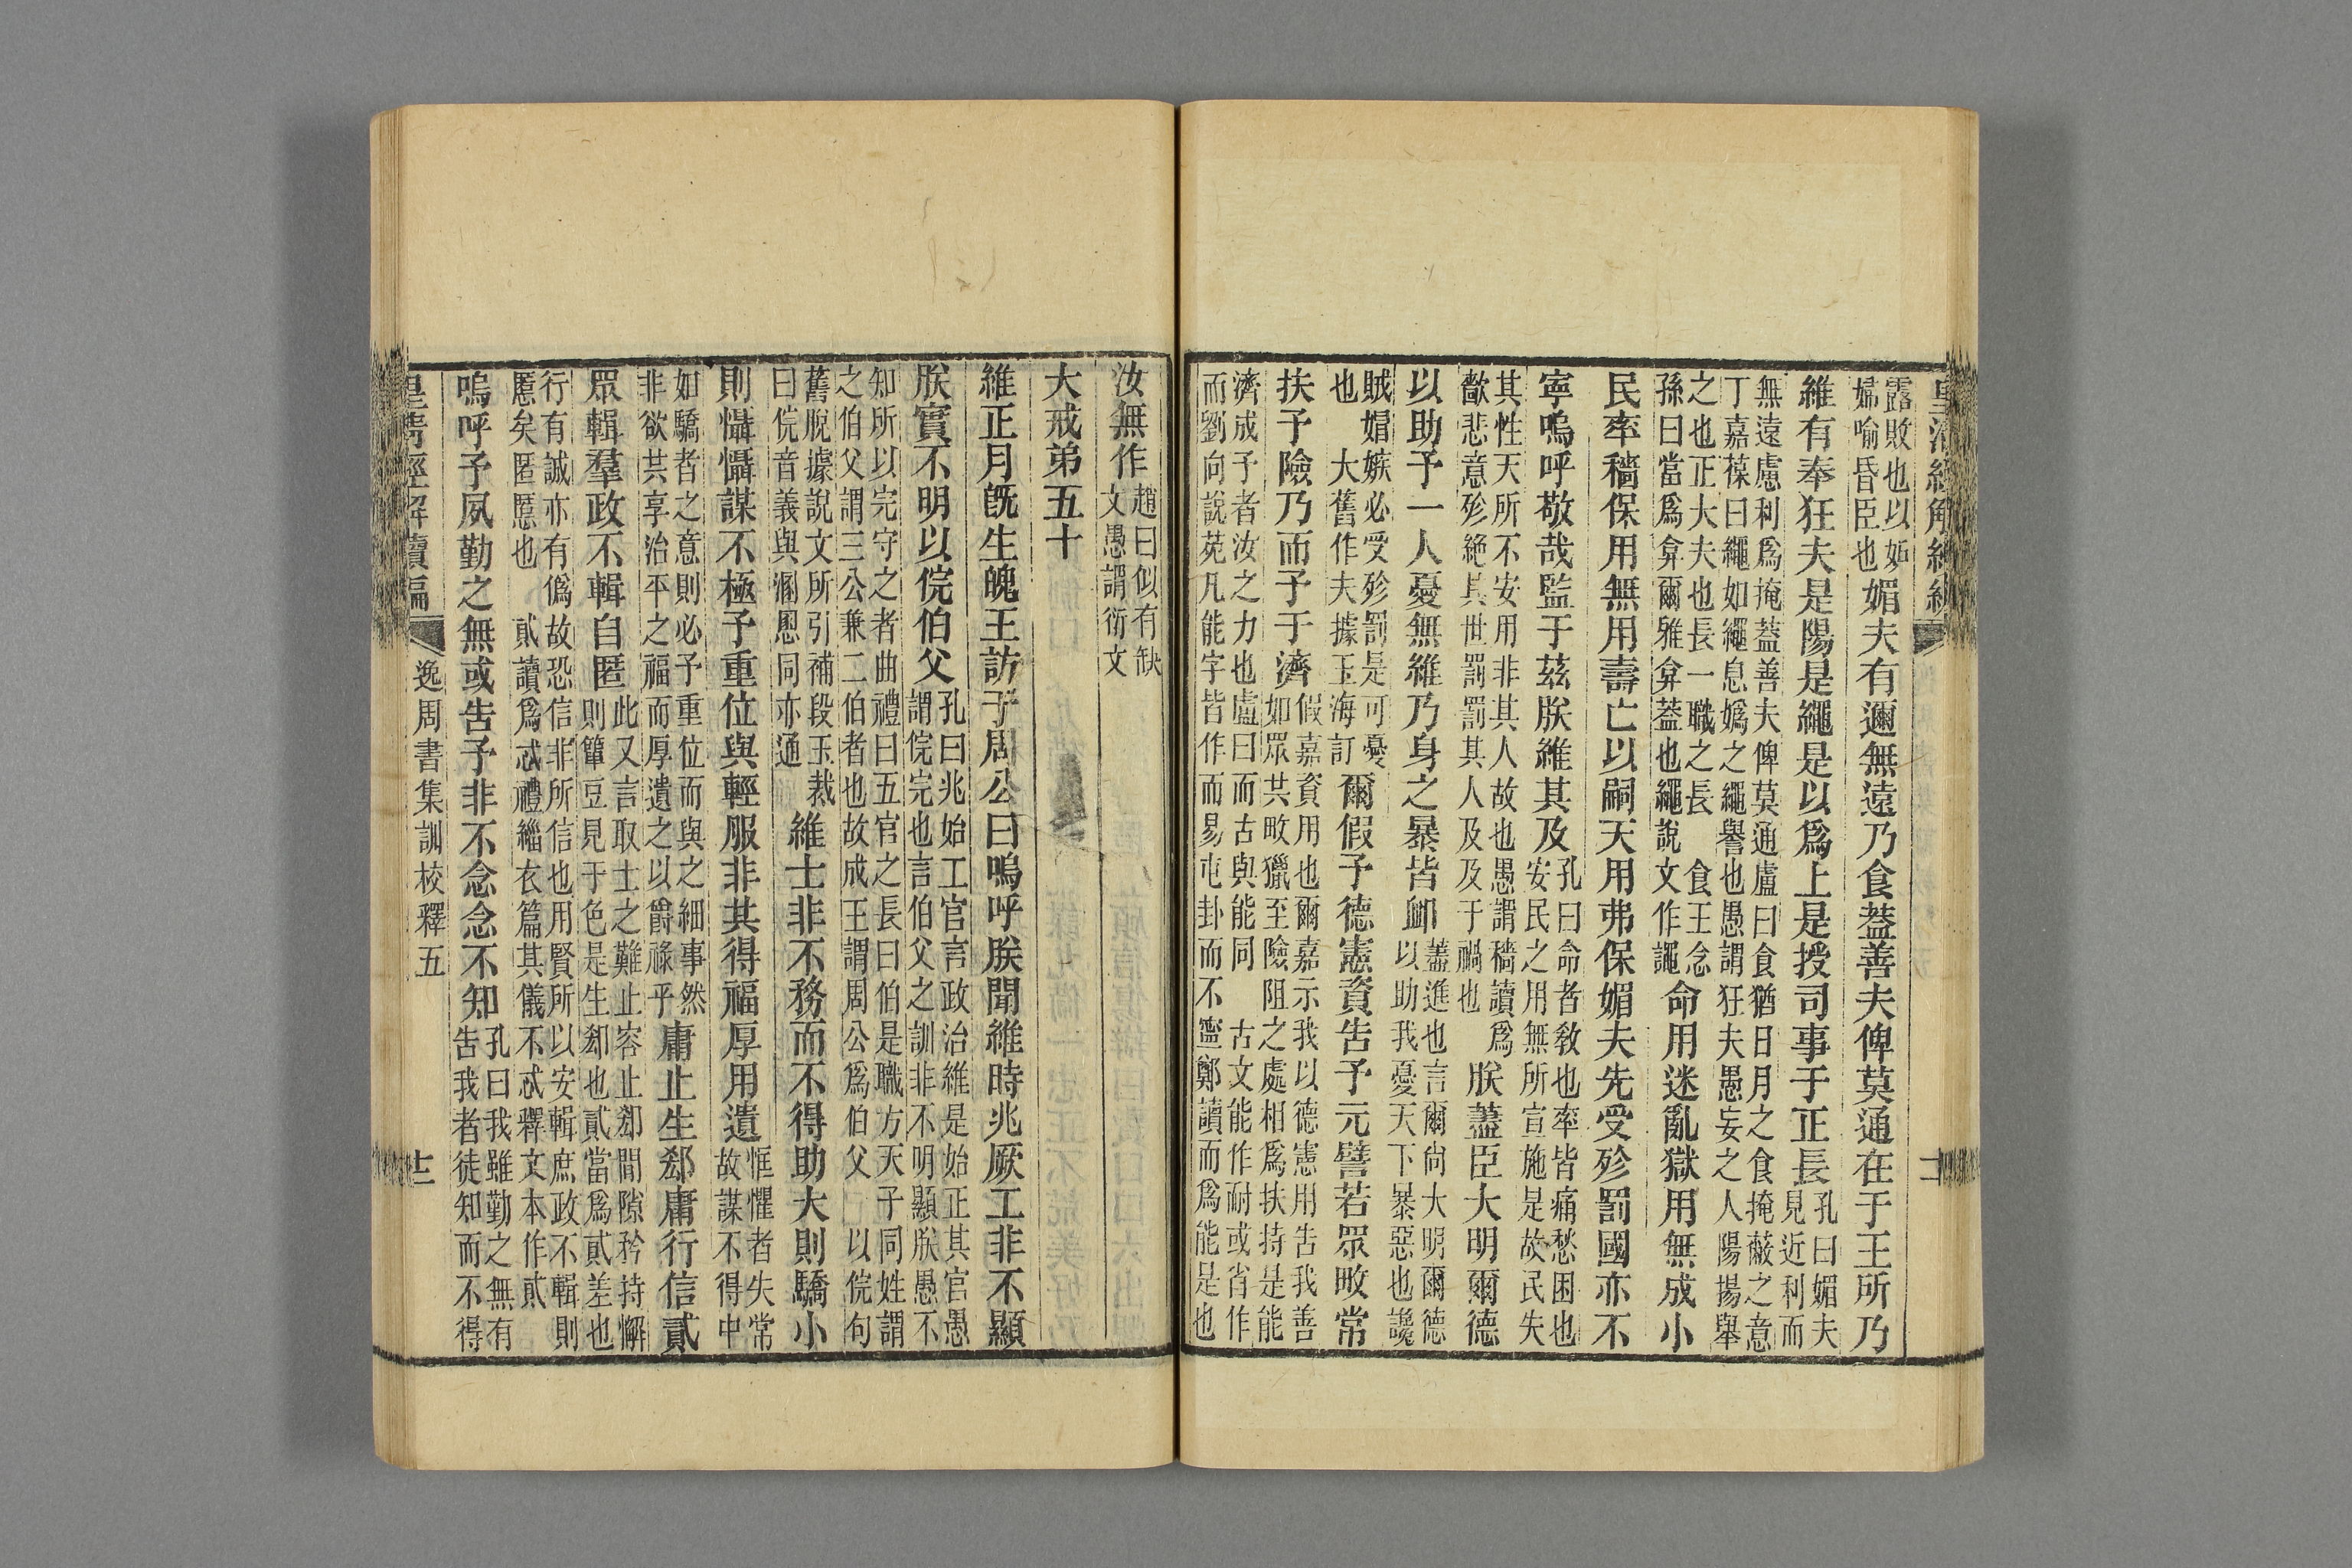 皇清經解續編
露敗也以妬
婦喻昏臣也
媚夫有邇無遠乃食蓋善夫俾莫通在于王所乃
維有奉狂夫是陽是繩是以爲上是授司事于正長
孔曰媚夫
見近利而
無遠慮利爲掩蓋善夫俾莫通盧曰食猶日月之食掩蔽之意
丁嘉葆曰繩如繩息嬀之繩譽也愚謂狂夫愚妄之人陽揚舉
之也正大夫也長一職之長 食王念
孫曰當爲弇爾雅弇蓋也繩說文作譝
命用迷亂獄用無成小
民率穡保用無用壽亡以嗣天用弗保媚夫先受殄罰國亦不
寧嗚呼敬哉監于茲朕維其及
孔曰命者敎也率皆痛愁困也
安民之用無所宣施是故民失
其性天所不安用非其人故也愚謂穡讀爲
歖悲意殄絕其世罰罰其人及及于禍也
朕藎臣大明爾德
以助予一人憂無維乃身之暴皆卹
藎進也言爾尙大明爾德
以助我憂天下暴惡也讒
賊媢嫉必受殄罰是可憂
也 大舊作夫據玉海訂
爾假予德憲資告予元譬若眾畋常
扶予險乃而予于濟
假嘉資用也爾嘉示我以德憲用告我善
如眾共畋獵至險阻之處相爲扶持是能
濟成予者汝之力也盧曰而古與能同 古文能作耐或省作
而劉向說苑凡能字皆作而易屯卦而不寧鄭讀而爲能是也
十二
汝無作
趙曰似有缺
文愚謂衍文
大戒弟五十
維正月旣生魄王訪于周公曰嗚呼朕聞維時兆厥工非不顯
朕實不明以俒伯父
孔曰兆始工官言政治維是始正其官愚
謂俒完也言伯父之訓非不明顯朕愚不
知所以完守之者曲禮曰五官之長曰伯是職方天子同姓謂
之伯父謂三公兼二伯者也故成王謂周公爲伯父 以俒句
舊脫據說文所引補段玉裁
曰俒音義與溷慁同亦通
維士非不務而不得助大則驕小
則懾懾謀不極予重位與輕服非其得福厚用遺
恇懼者失常
故謀不得中
如驕者之意則必予重位而與之細事然
非欲其享治平之福而厚遺之以爵祿乎
庸止生郄庸行信貳
眾輯羣政不輯自匿
此又言取士之難止容止郄間隙矜持懈
則簞豆見于色是生郄也貳當爲貳差也
行有誠亦有僞故恐信非所信也用賢所以安輯庶政不輯則
慝矣匿慝也 貳讀爲忒禮緇衣篇其儀不忒釋文本作貳
嗚呼予夙勤之無或告予非不念念不知
孔曰我雖勤之無有
告我者徒知而不得
皇淸經解續編
逸周書集訓校釋五
十二